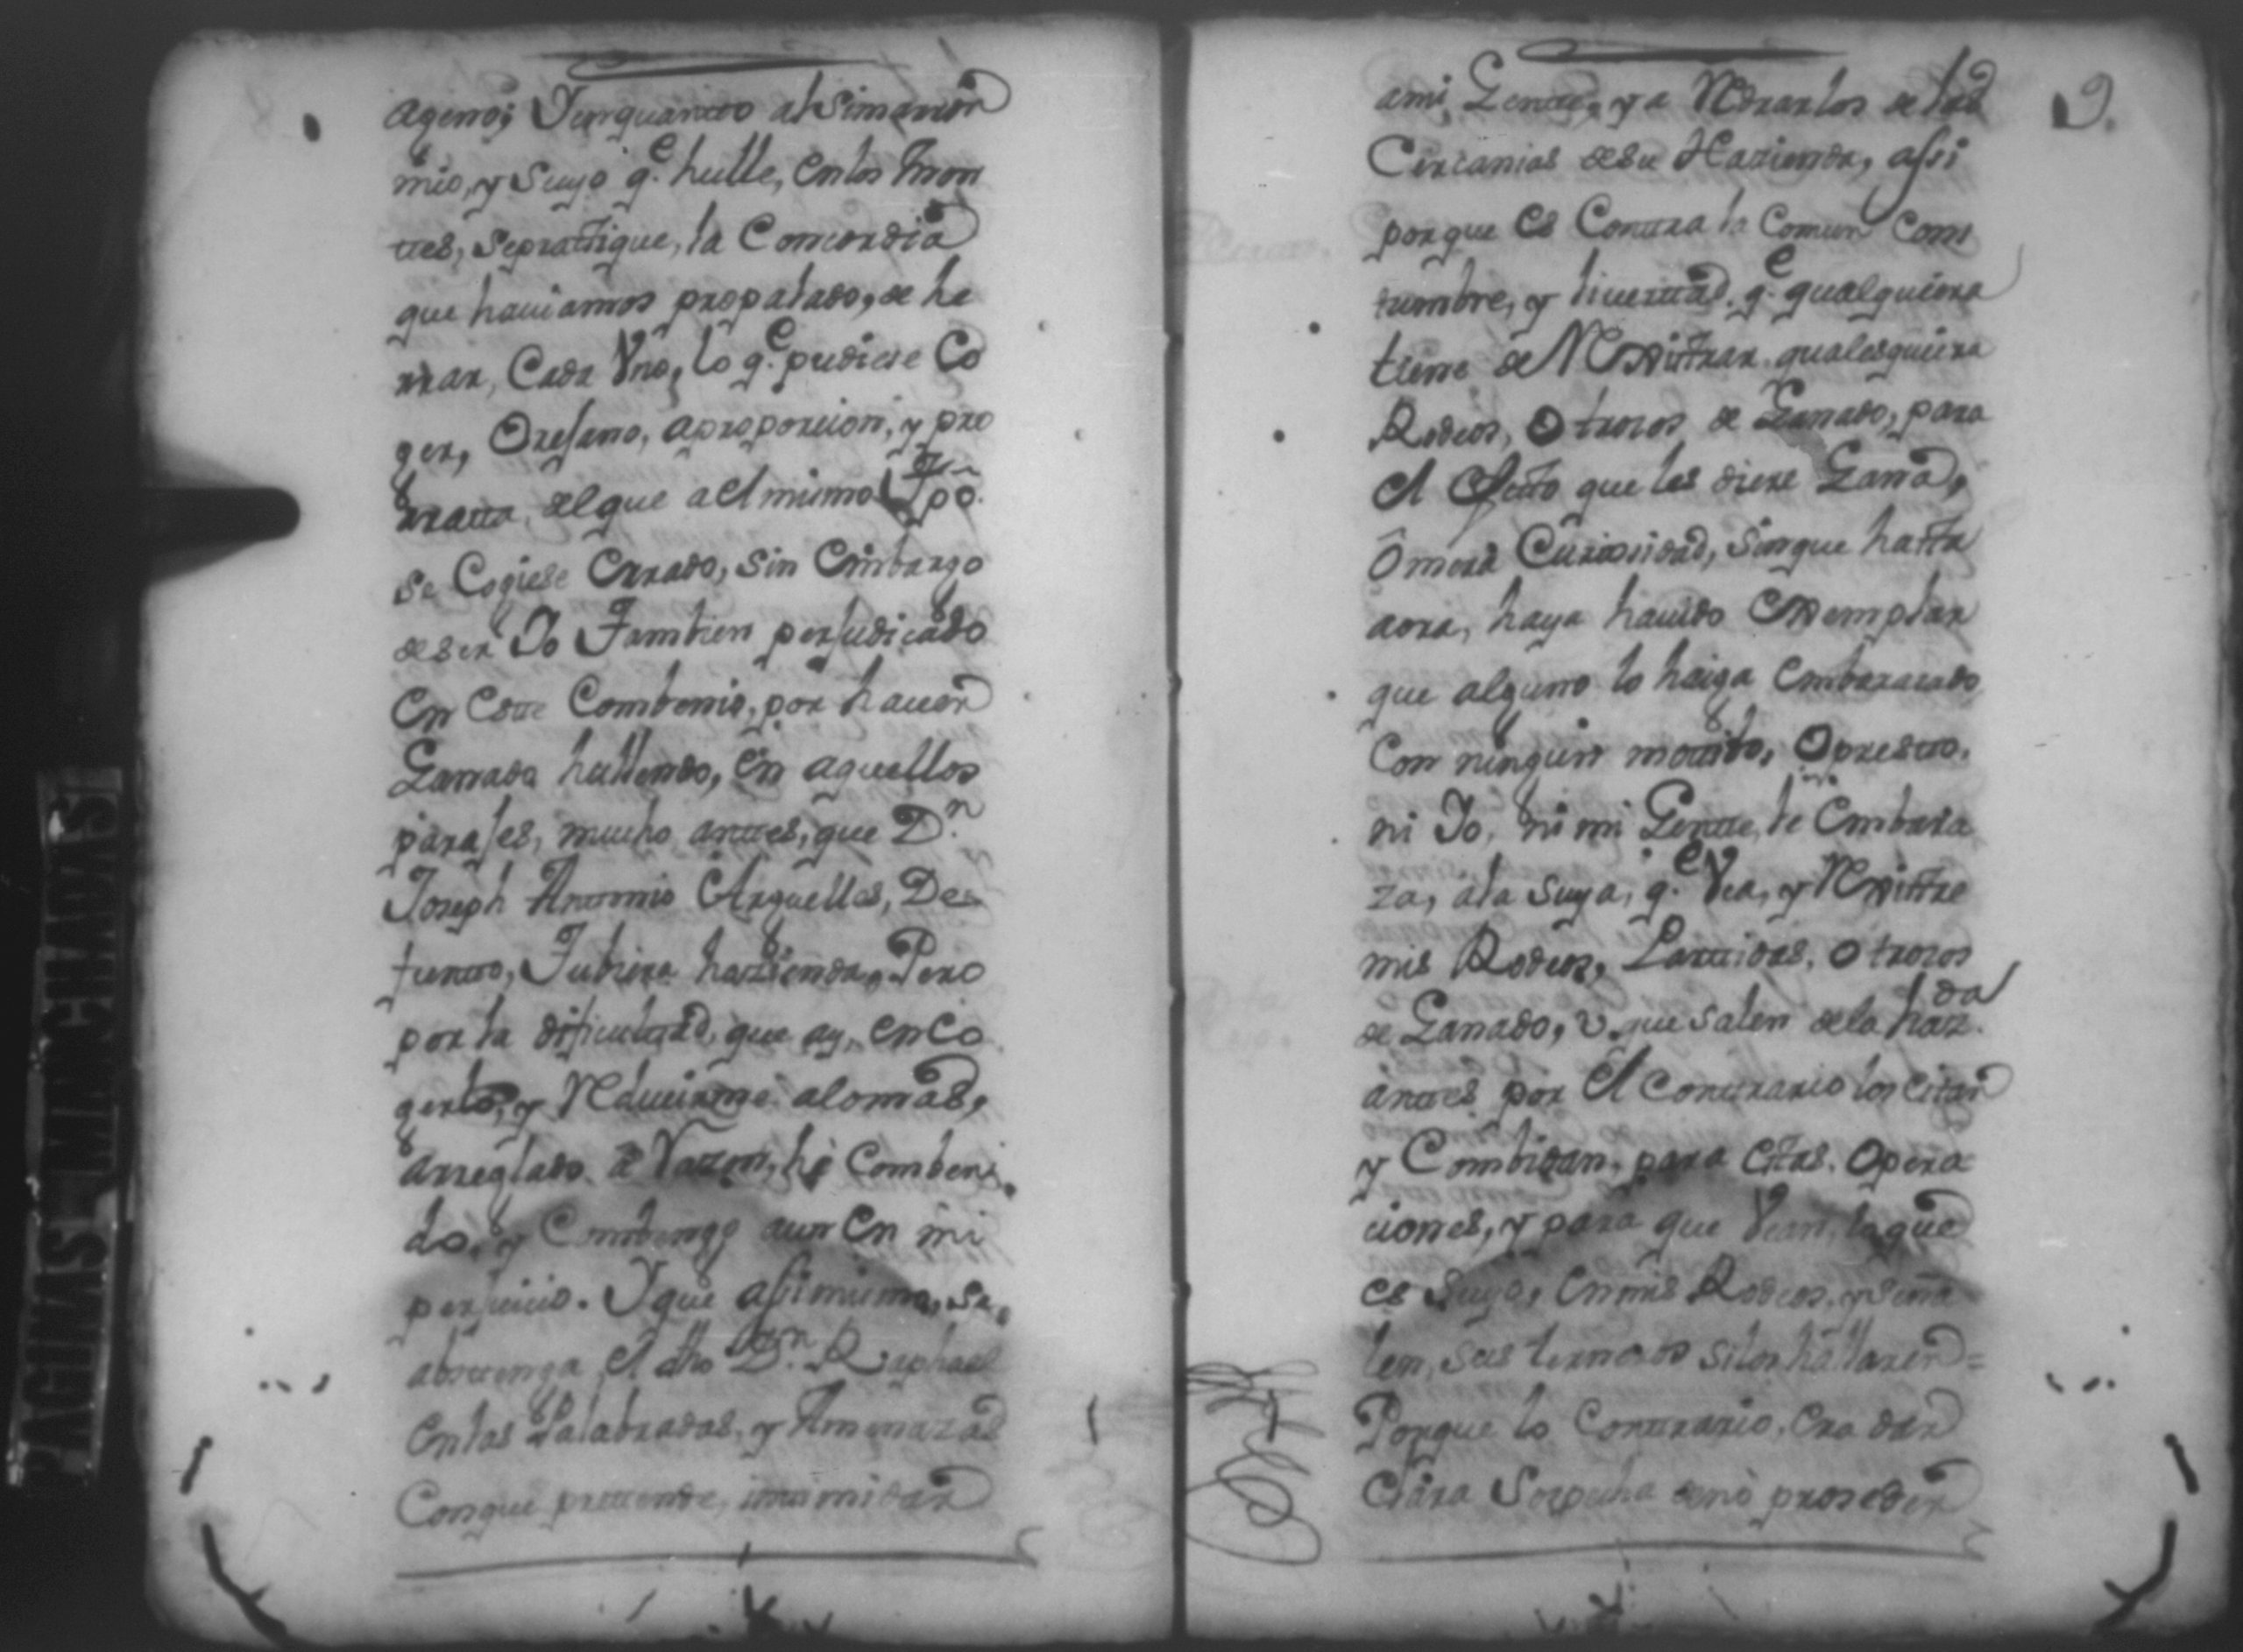 ageno; Y en quanto al Simarron
mio, y Suyo q.e hulle, en los mon
ttes, Se prattique, la Concordia
que haviamos propalado, de he
rrar, Cada Uno, lo q.e pudiese Co
ger, Orejano, a proporcion, y pro
rratta, del que a el mismo Tpõ.
se Cogiese Errado, sin Embargo
de ser Yo Tambien perjudicado
En Este Combenio, por haver
Ganado hullendo, en aquellos
parajes, mucho anttes, que D.n
Joseph Anttonio Arguelles, De
funtto, Tubiera hazienda, Pero
por la dificulttad, que ay, en Co
gerlo, y Reducirme a lo mas,
arreglado a Razon, he Combeni
do, y Combengo aun En mi
perjuicio. Y que assi mismo, se
abstenga, el dho D.n Raphael
En las Palabradas, y Amenazas
Con que prettende, inttimidar
PAGINAS MANCHADAS
9.
a mi, Gentte, y a Retirarlos de las
Cercanias de su Hazienda, assi
porque es Contra la Comun Cos
tumbre, y livertad, q.e qualquiera
tiene de Rexistrar qualesquiera
Rodeos, O trozos de Ganado, para
el efecto que les diere Gana,
O mera Curiosidad, Sin que hasta
aora, haya havido Exemplar
que alguno lo haiga Embarazado
Con ningun mottibo, O presto.
ni Yo, ni mi Gentte, le Embara
za, a la suya, q.e Vea, y Rexistre
mis Rodeos, Parttidas, O trozos
de Ganado, que salen de la haz.da
anttes por el Conttrario los Citan
y Combidan, para Estas Opera
ciones, y para que Vean, lo que
es Suyo, En mis Rodeos, y Seña
len, sus terneros si los hallaren =
Porque lo Conttrario, Era dar
Clara Sospecha de no proseder